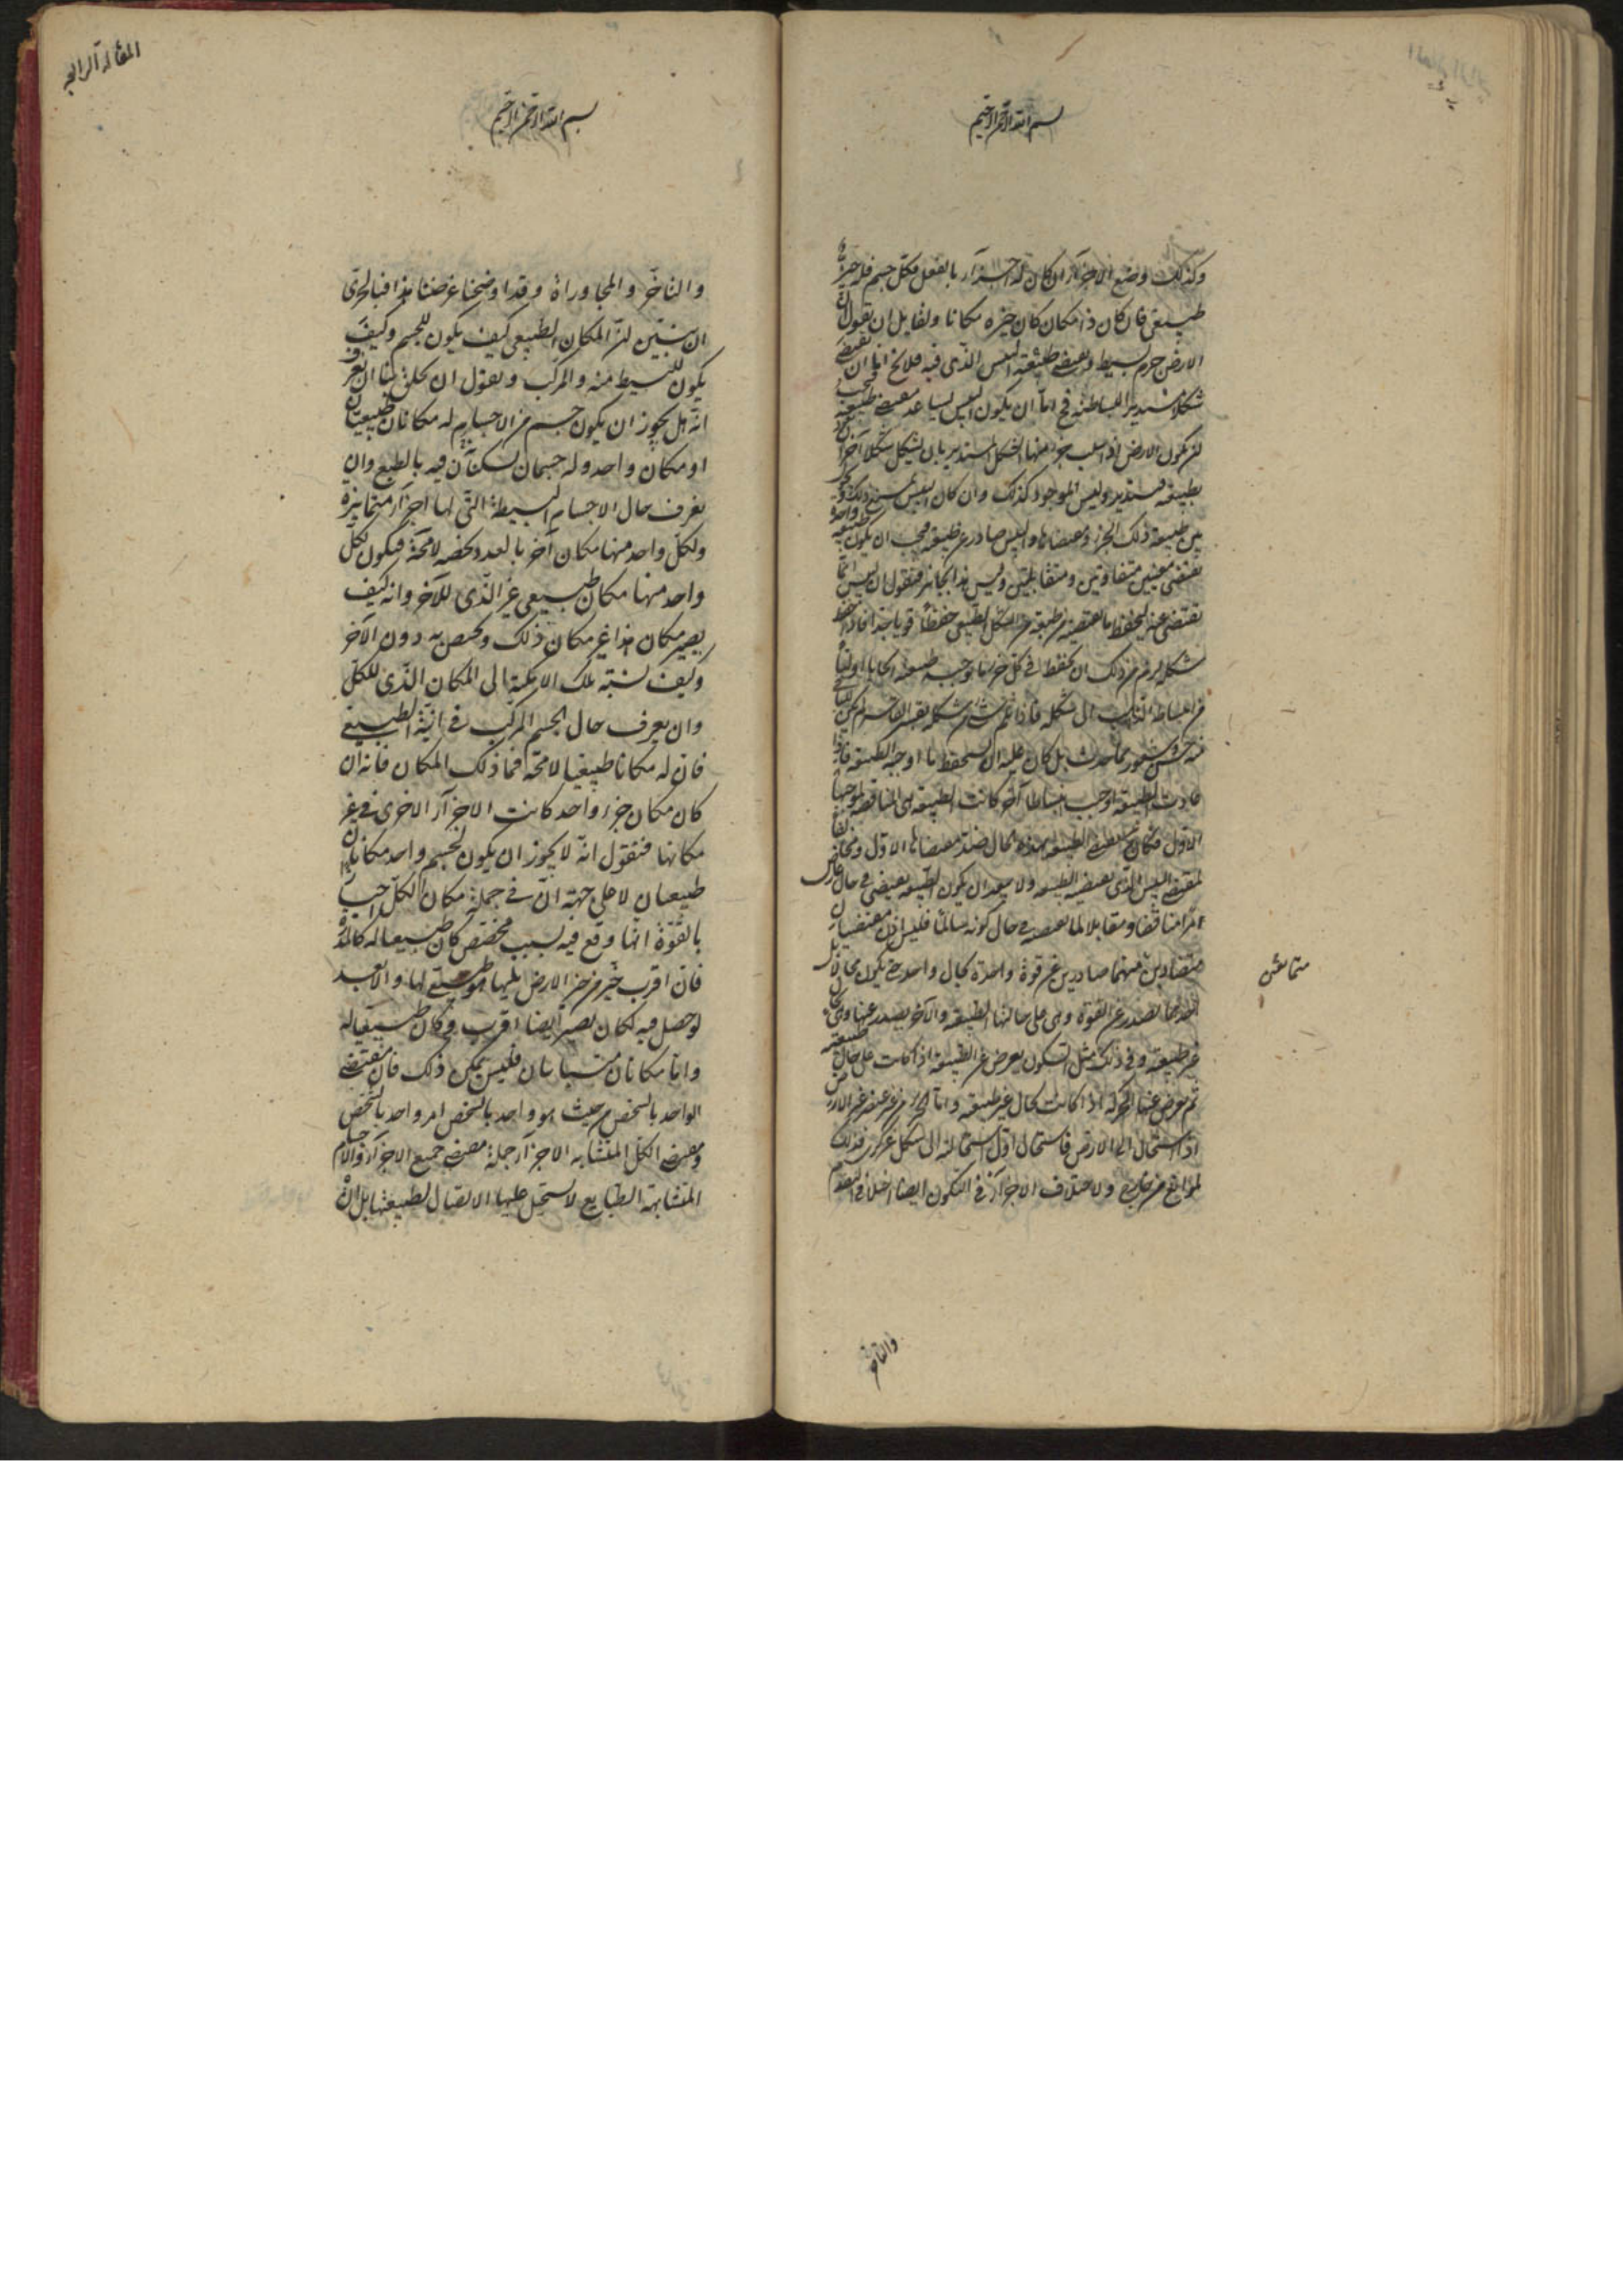 بسم الله الرحمن الرحيم
وكذلك وضع الاجزآء ان كان له اجزآء بالفعل فكل جسم فله حيز
طبيعى فان كان ذا مكان كان حيزه مكانا ولقايل ان يقول ان
الارض جرم بسيط ومقتضى طبيعته اليبس الذى فيه فلا يخ اما ان يقتضى
شكلا مستديرا لبساطته فح اما ان يكون اليبس يساعد مقتضى طبيعته فيجب
لن يكون الارض اذا سلب جزء منها الشكل المستدير بان يشكل شكلا آخر
بطبيعته فيستدير وليس الموجود كذلك وان كان اليبس يمنع ذلك
بين طبيعة ذلك الجزء ومقتضاها واليبس صادر عن طبيعته فيجب ان يكون طبيعة واحدة
تقتضى معنيين متفاوتين ومتقابلين وليس هذا بجائز فنقول ان اليبس انما
تقتضى عنه ليحفظ ما تقتضيه طبيعته من الشكل الطبيعى حفظا قويا
شكله لزم من ذلك ان يحفظ فى كل جزء ما توجبه طبيعته ايجابا اوليا
من انبساطه الذاهب الى شكله فاذا ثم شكله بقسر القاسر لم يكن
منه حس وشعور بما يحدث بل كان عليه ان يستحفظ ما اوجبه الطبيعة فاذا
عادت الطبيعة اوجبت انبساطا آخر كانت الطبيعة هى المناقضة لموجبها
الاول فكان مقتضى الطبيعة بهذه الحال ضد مقتضاها الاول
لمقتضى اليبس الذى تقتضيه الطبيعة ولا يبعد ان يكون الطبيعة تقتضى فى حال عارض
امرا مناقضا ومقابلا لما تقتضيه فى حال كونه سالما فليس اذن مقتضيان
متضادين منهما صادرين عن قوة واحدة بحال واحدة حتى يكون محالا بل
احدهما يصدر عن القوة وهى على حالتها الطبيعية والآخر يصدر عنها وهى بحال
غير طبيعية وفى ذلك مثل السكون يعرض عن الطبيعة اذا كانت على حال طبيعية
ثم يعرض عنها الحركة اذا كانت بحال غير طبيعية واما الجزء من غير عنصر الارض
اذا استحال الى الارض فاستحال اول استحالته الى شكل غير كرى فذلك
لموانع من خارج ولاختلاف الاجزآء فى التكون ايضا اختلافا فى التقدم
متمانعين
والتاخر
المقالة الرابعة
بسم الله الرحمن الرحيم
والتاخر والمجاوراة وقد اوضحنا غرضنا هذا فبالحرى
ان نبين لن المكان الطبيعى كيف يكون للجسم وكيف
يكون للبسيط منه والمركب ونقول ان يحق لنا ان نعرف
انه هل يجوز ان يكون جسم من الاجسام له مكانان طبيعيان
او مكان واحد وله جسمان يسكنان فيه بالطبع وان
نعرف حال الاجسام البسيطة التى لها اجزآء متمايزة
ولكل واحد منها مكان آخر بالعدد يخصه لا محة فيكون لكل
واحد منها مكان طبيعى غير الذى للآخر وانه كيف
يصير مكان هذا غير مكان ذلك ويختص به دون الآخر
وكيف نسبة تلك الامكنة الى المكان الذى للكل
وان يعرف حال الجسم المركب فى اينه الطبيعى
فان له مكانا طبيعيا لا محة فما ذلك المكان فانه ان
كان مكان جزء واحد كانت الاجزآء الاخرى فى غير
مكانها فنقول انه لا يجوز ان يكون لجسم واحد مكانان
طبيعيان لا على جهة ان فى جملة مكان الكل احيازا
بالقوة ايها وقع فيه بسبب مخصص كان طبيعيا له كالمدرة
فان اقرب حيز من حيز الارض يليها هو طبيعى لها والابعد
لو حصل فيه لكان يصير ايضا اقرب وكان طبيعيا له
واما مكانان متباينان فليس يمكن ذلك فان مقتضى
الواحد بالشخص من حيث هو واحد بالشخص امر واحد بالشخص
ومقتضى الكل المتشابه الاجزآء جملة مقتضى جميع الاجزآء والاجسام
المتشابهة الطبايع لا يستحيل عليها الاتصال لطبيعتها بل ان